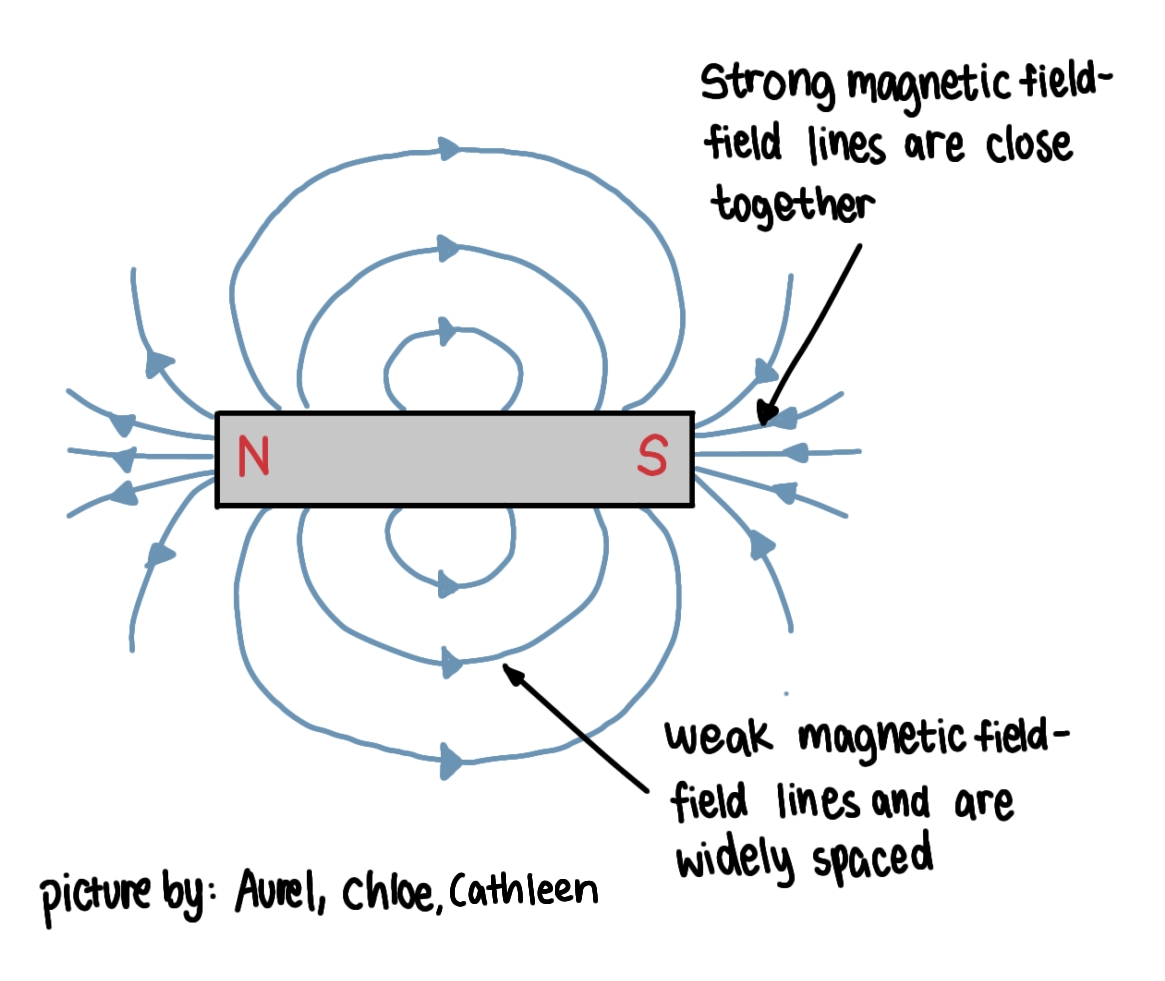 Strong magnetic field-
field lines are close
together
N
S
weak magnetic field-
field lines and are
widely spaced
picture by: Aurel, Chloe, Cathleen